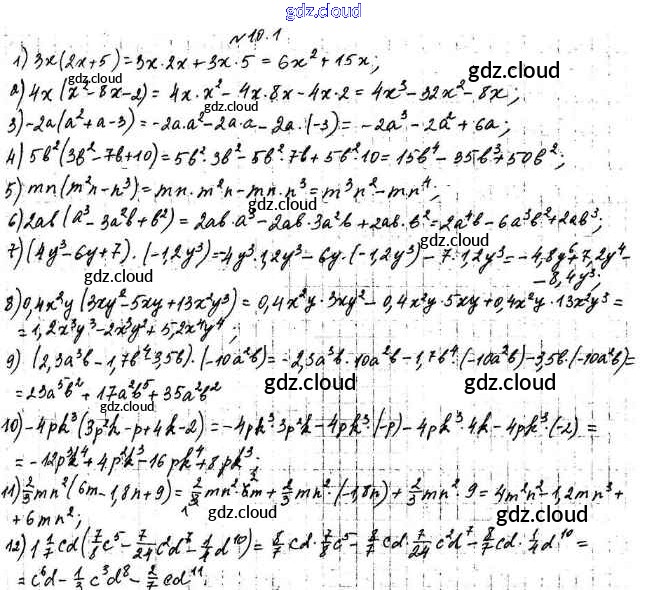 gdz.cloud
№10.1
1) 3x(2x+5)=3x·2x+3x·5=6x²+15x;
gdz.cloud
2) 4x(x²-8x-2)=4x·x²-4x·8x-4x·2=4x³-32x²-8x;
gdz.cloud
3) -2a(a²+a-3)=-2a·a²-2a·a-2a·(-3)=-2a³-2a²+6a;
gdz.cloud
4) 5b²(3b²-7b+10)=5b²·3b²-5b²·7b+5b²·10=15b⁴-35b³+50b²;
gdz.cloud
5) mn(m²n-n³)=mn·m²n-mn·n³=m³n²-mn⁴;
gdz.cloud
6) 2ab(a³-3a²b+b²)=2ab·a³-2ab·3a²b+2ab·b²=2a⁴b-6a³b²+2ab³;
gdz.cloud
7) (4y³-6y+7)·(-1,2y³)=-4y³·1,2y³-6y·(-1,2y³)-7·1,2y³=-4,8y⁶+7,2y⁴-
-8,4y³;
gdz.cloud
8) 0,4x²y(3xy²-5xy+13x²y³)=0,4x²y·3xy²-0,4x²y·5xy+0,4x²y·13x²y³=
=1,2x³y³-2x³y²+5,2x⁴y⁴;
gdz.cloud
9) (2,3a³b-1,7b⁴-3,5b)·(-10a²b)=-2,3a³b·10a²b-1,7b⁴·(-10a²b)-3,5b·(-10a²b)=
=23a⁵b²+17a²b⁵+35a²b²
gdz.cloud
gdz.cloud
gdz.cloud
10) -4pk³(3p²k-p+4k-2)=-4pk³·3p²k-4pk³·(-p)-4pk³·4k-4pk³·(-2)=
=-12p³k⁴+4p²k³-16pk⁴+8pk³.
gdz.cloud
11) 2/3mn²(6m-1,8n+9)=2/3mn²·6m+2/3mn²·(-1,8n)+2/3mn²·9=4m²n²-1,2mn³+
+6mn²;
gdz.cloud
gdz.cloud
12) 1 1/7cd(7/8c⁵-7/24c²d⁷-1/4d¹⁰)=8/7cd·7/8c⁵-8/7cd·7/24c²d⁷-8/7cd·1/4d¹⁰=
=c⁶d-1/3c³d⁸-2/7cd¹¹.
gdz.cloud
gdz.cloud